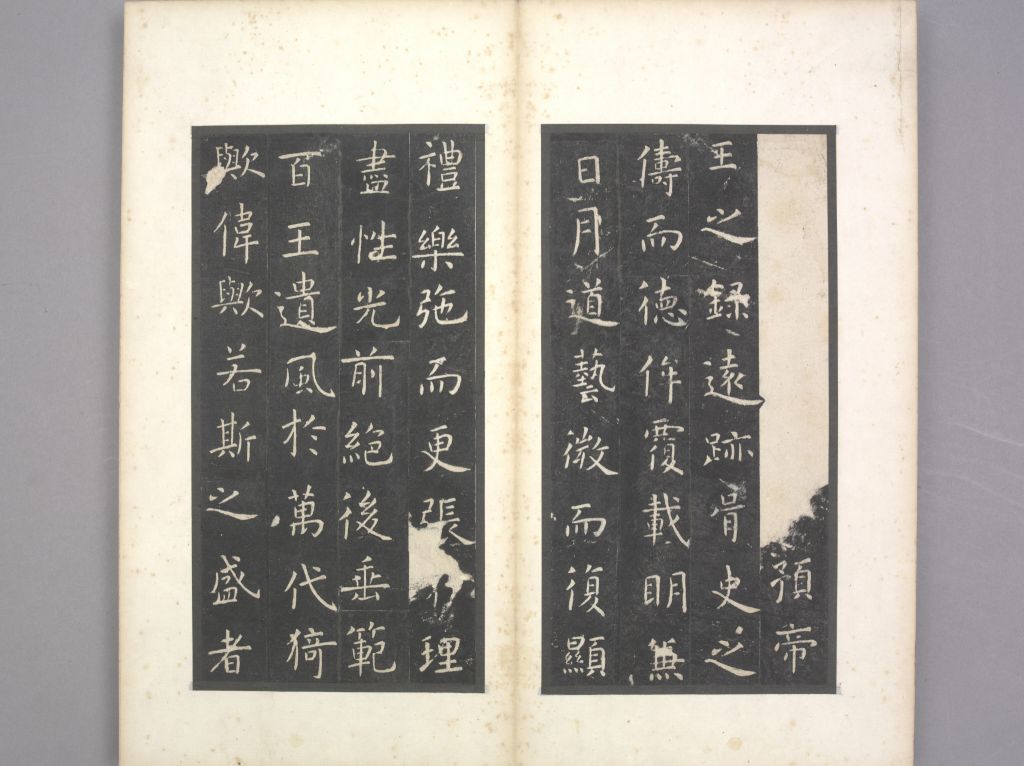 預帝
王之録遠跡胥史之
儔而德侔覆載明兼
日月道藝微而復顯
禮樂弛而更張理
盡性光前絶後垂範
百王遺風於萬代猗
歟偉歟若斯之盛者